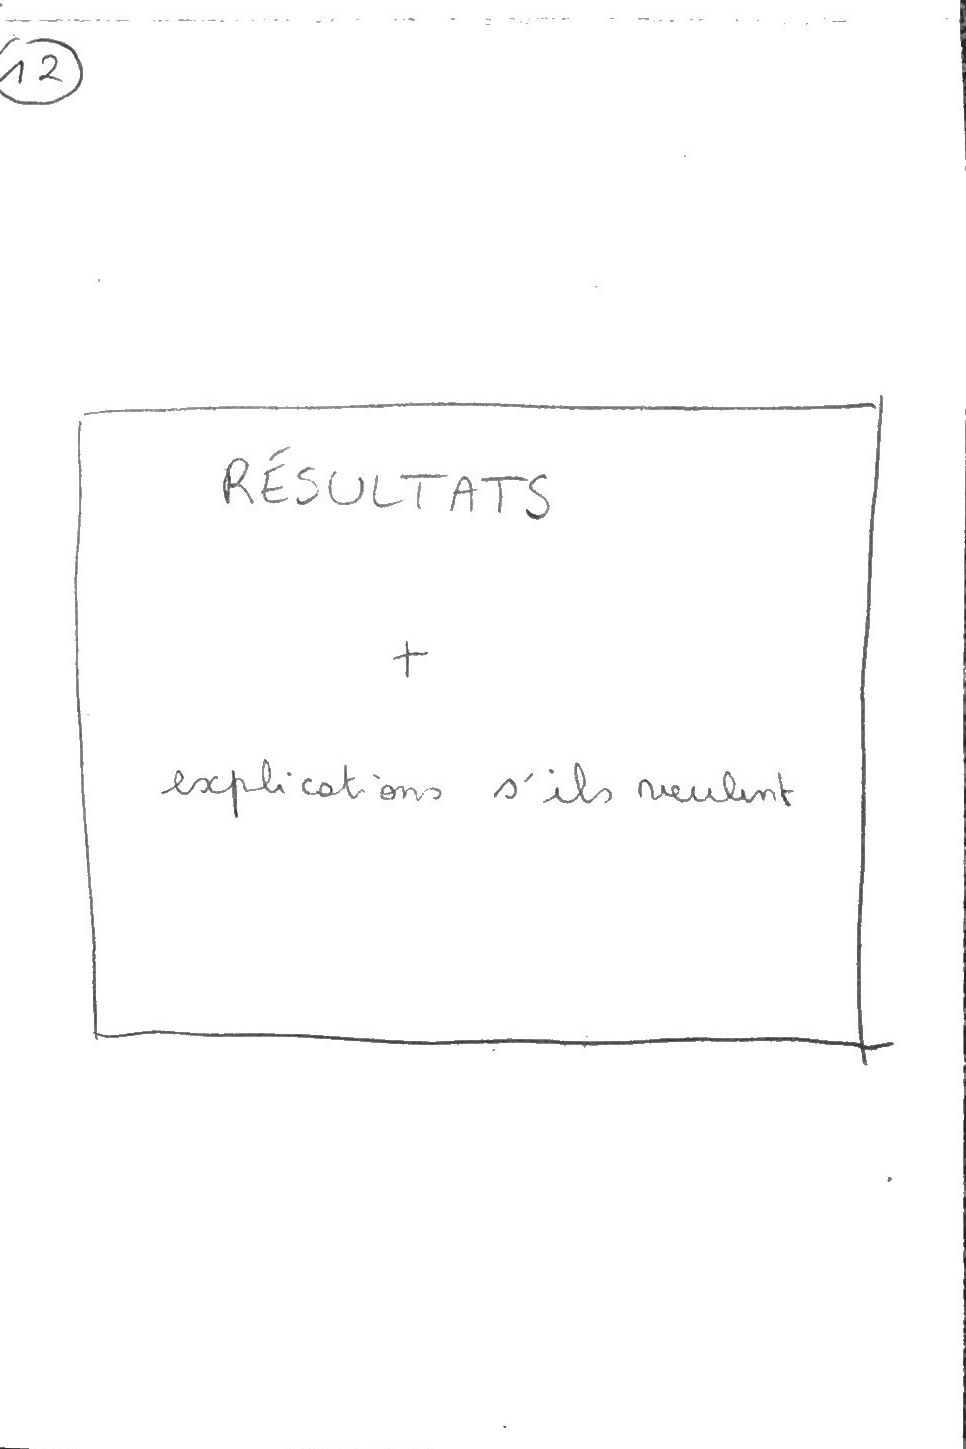 12
RÉSULTATS
+
explications s'ils veulent